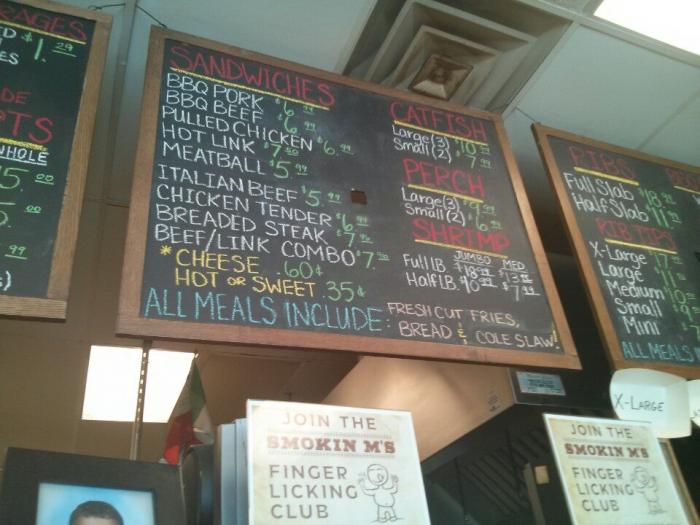 RAGES
$1.29
ES
DE
TS
WHOLE
5.00
5.00
.99
SANDWICHES
BBQ PORK $6.99
BBQ BEEF $6.99
PULLED CHICKEN $6.99
HOT LINK $7.50
MEATBALL $5.99
ITALIAN BEEF $5.99
CHICKEN TENDER $6.99
BREADED STEAK $7.99
BEEF/LINK COMBO $7.50
*CHEESE .60¢
HOT OR SWEET .35¢
CATFISH
Large(3) $10.99
Small(2) $7.99
PERCH
Large(3)
Small(2) $6.99
SHRIMP
JUMBO MED
Full LB $18.99 $13.99
Half LB. $10.99 $7.99
ALL MEALS INCLUDE: FRESH CUT FRIES,
BREAD & COLE SLAW!
RIBS
Full Slab $18.99
Half Slab $11.99
RIB TIPS
X-Large
Large
Medium
Small
Mini
ALL MEALS
X-LARGE
JOIN THE
SMOKIN M'S
FINGER
LICKING
CLUB
JOIN THE
SMOKIN M'S
FINGER
LICKING
CLUB